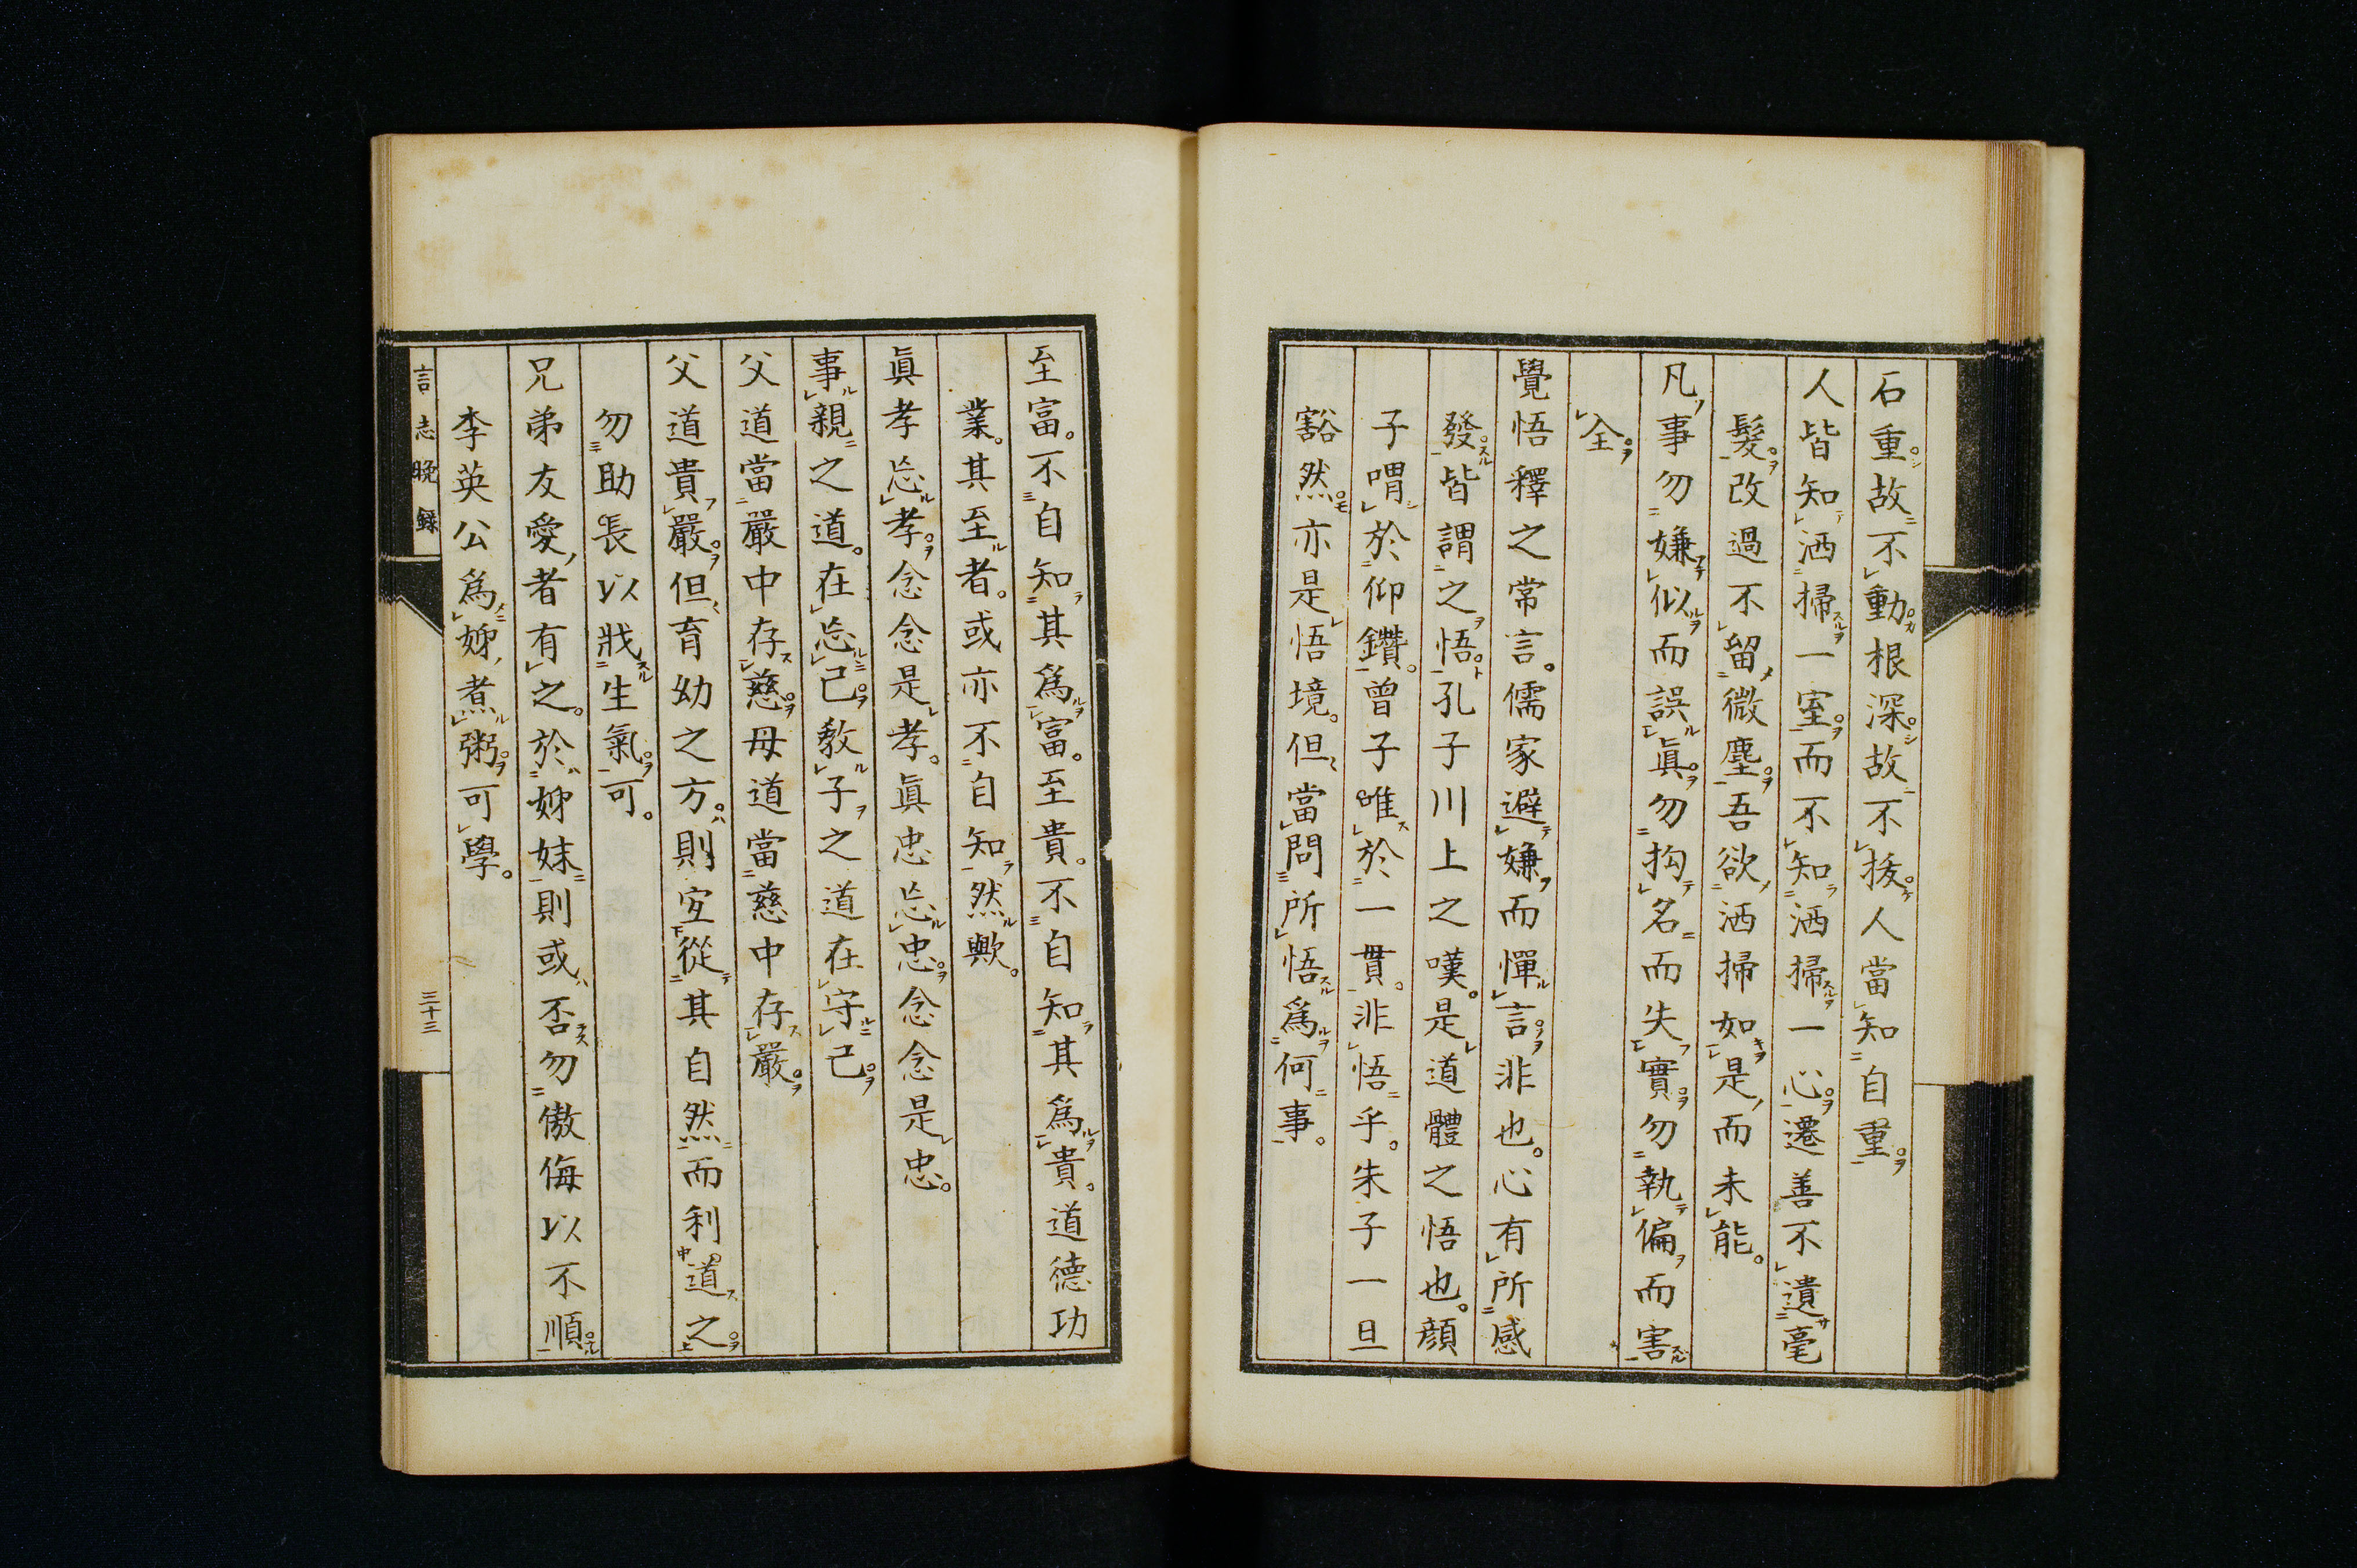 石重故不動根深故不拔人當知自重
人皆知洒掃一室而不知洒掃一心遷善不遺毫
髮改過不留微塵吾欲洒掃如是而未能
凡事勿嫌似而誤眞勿拘名而失實勿執偏而害
全
覺悟釋之常言。儒家避嫌而憚言非也。心有所感
發皆謂之悟孔子川上之嘆。是道體之悟也。顔
子喟於仰鑽。曾子唯於一貫。非悟乎。朱子一旦
豁然亦是悟境。但當問所悟爲何事。
至富。不自知其爲富。至貴。不自知其爲貴。道德功
業。其至者。或亦不自知然歟。
眞孝忘孝念念是孝。眞忠忘忠念念是忠。
事親之道。在忘己敎子之道在守己
父道當嚴中存慈母道當慈中存嚴
父道貴嚴但育幼之方則宜從其自然而利道之
勿助長以戕生氣可。
兄弟友愛者有之。於姊妹則或否勿傲侮以不順
李英公爲姊煮粥可學。
言志晚録
三十三